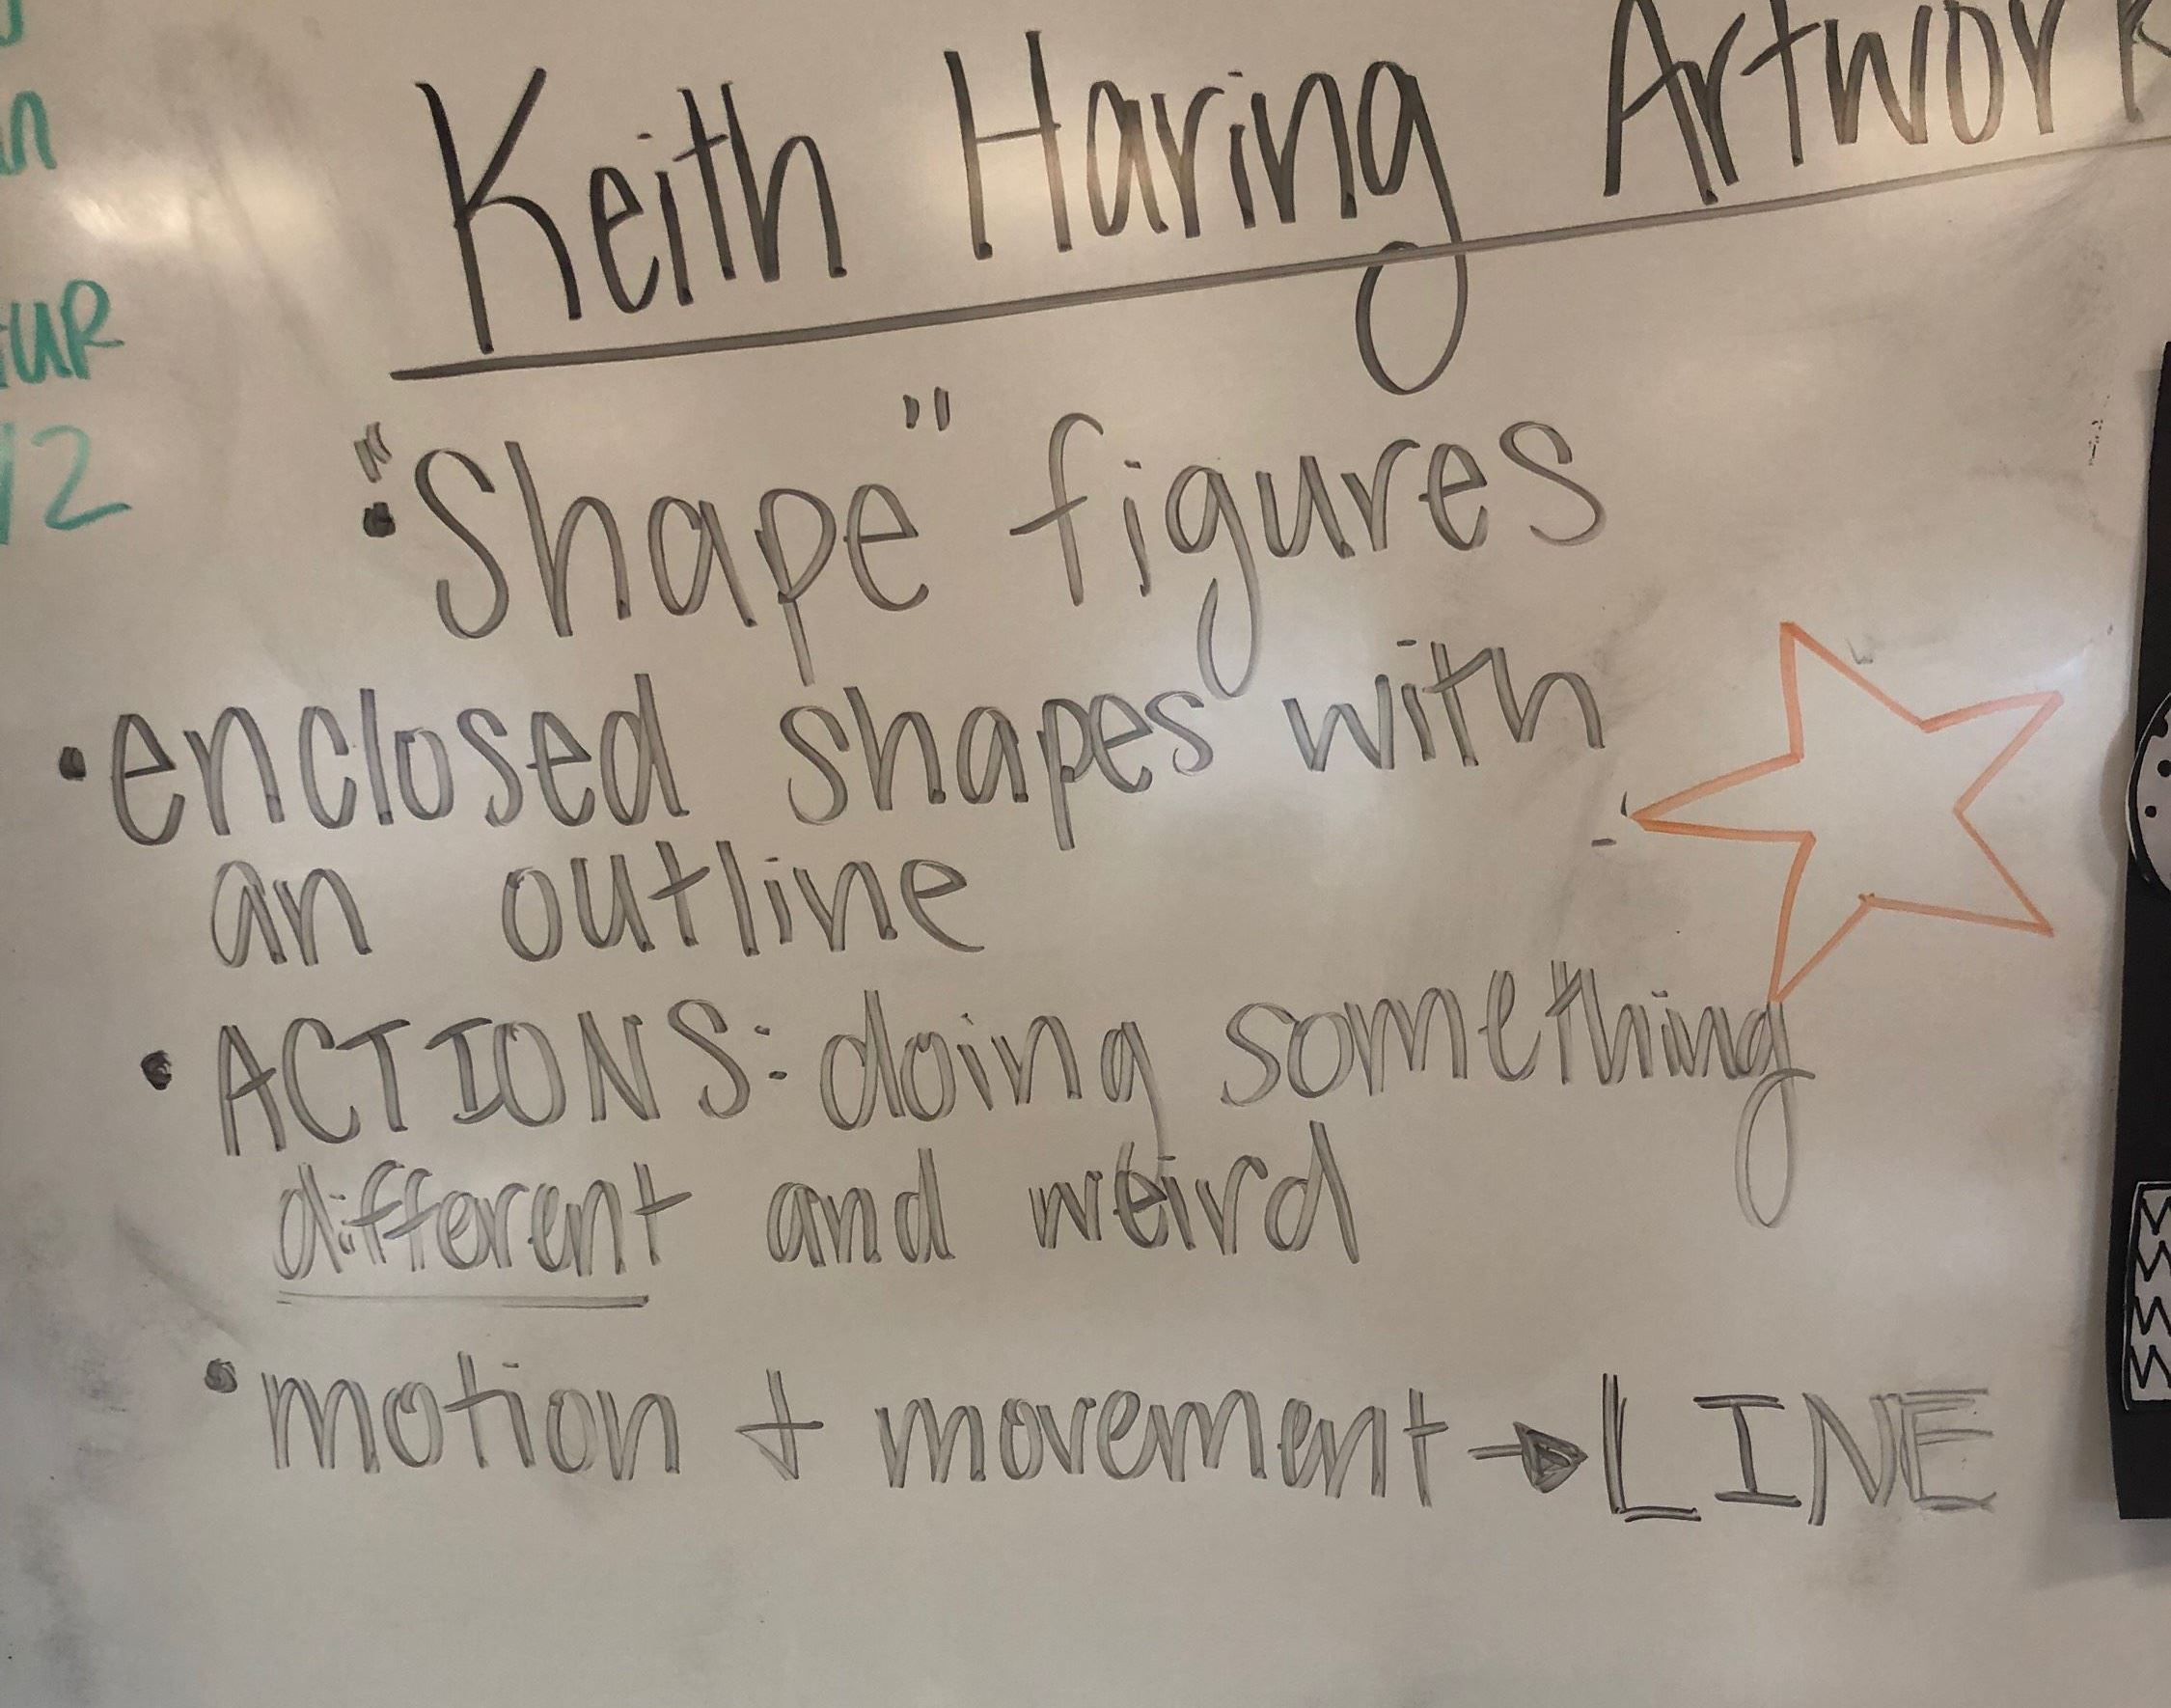 Keith Haring Artwork
• "Shape" figures
• enclosed shapes with
an outline
• ACTIONS: doing something
different and weird
• motion + movement → LINE